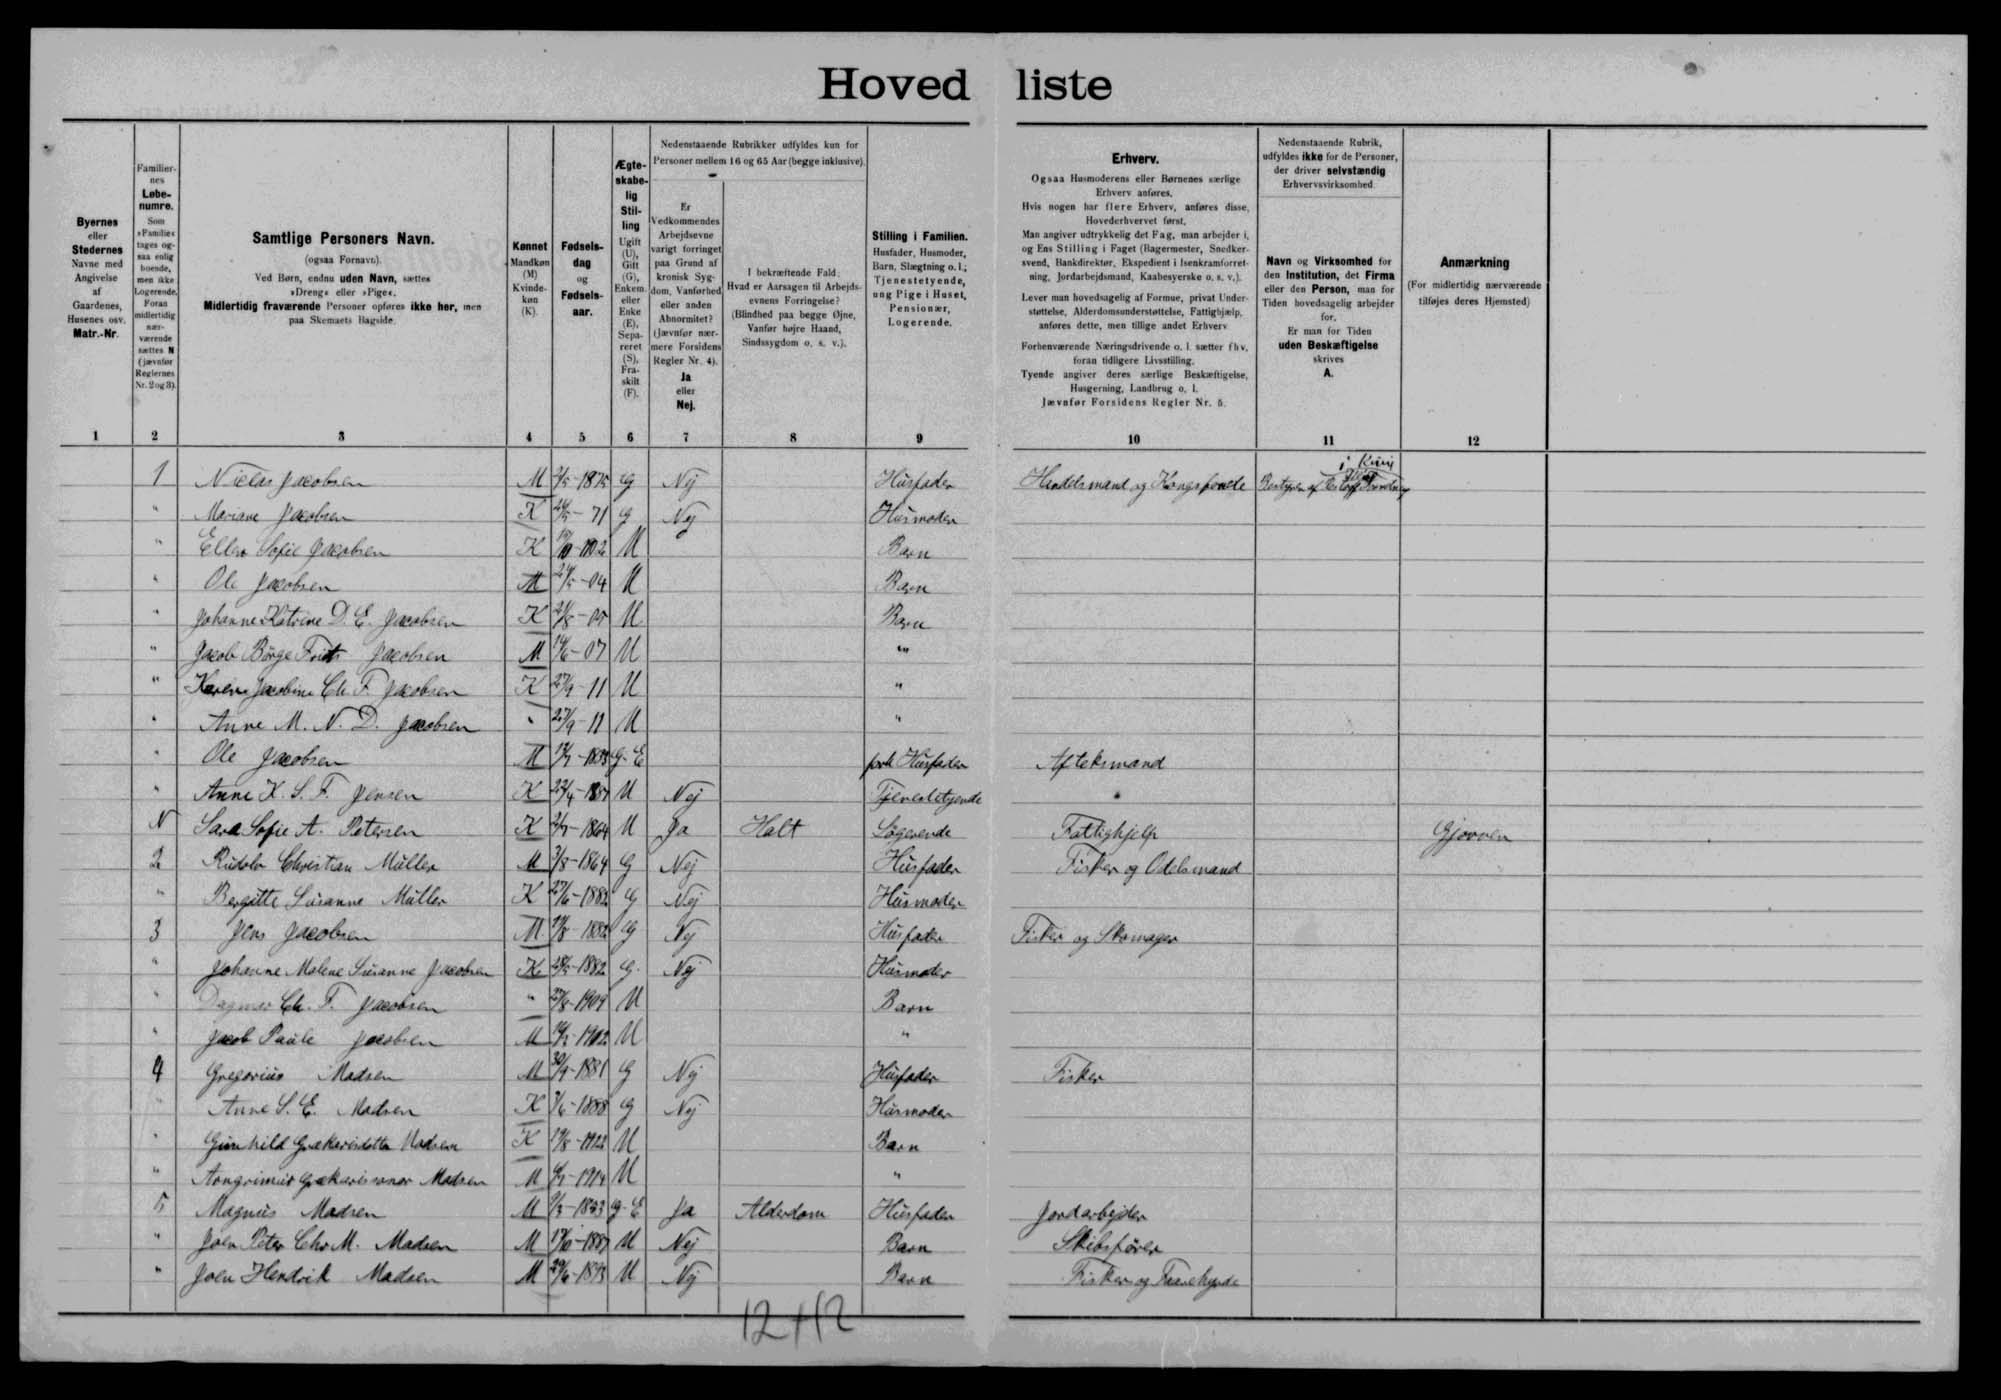 Hovedliste
Byernes
eller
Stedernes
Navne med
Angivelse
af
Gaardenes,
Husenes osv.
Matr.-Nr.
Familier-
nes
Løbe-
numre.
Som
»Familie«
tages og-
saa enlig
boende,
men ikke
Logerende.
Foran
midlertidig
nær-
værende
sættes N
(jævnfør
Reglernes
Nr. 2 og 3).
Samtlige Personers Navn.
(ogsaa Fornavn).
Ved Børn, endnu uden Navn, sættes
»Dreng« eller »Pige«.
Midlertidig fraværende Personer opføres ikke her, men
paa Skemaets Bagside.
Kønnet
Mandkøn
(M)
Kvinde-
køn
(K).
Fødsels-
dag
og
Fødsels-
aar.
Ægte-
skabe-
lig
Stil-
ling
Ugift
(U),
Gift
(G),
Enkem.
eller
Enke
(E),
Sepa-
reret
(S),
Fra-
skilt
(F).
Nedenstaaende Rubrikker udfyldes kun for
Personer mellem 16 og 65 Aar (begge inklusive).
Er
Vedkommendes
Arbejdsevne
varigt forringet
paa Grund af
kronisk Syg-
dom, Vanførhed
eller anden
Abnormitet?
(Jævnfør nær-
mere Forsidens
Regler Nr. 4).
Ja
eller
Nej.
I bekræftende Fald:
Hvad er Aarsagen til Arbejds-
evnens Forringelse?
(Blindhed paa begge Øjne,
Vanfør højre Haand,
Sindssygdom o. s. v.).
Stilling i Familien.
Husfader, Husmoder,
Barn, Slægtning o. l.;
Tjenestetyende,
ung Pige i Huset,
Pensionær,
Logerende.
Erhverv.
Ogsaa Husmoderens eller Børnenes særlige
Erhverv anføres.
Hvis nogen har flere Erhverv, anføres disse,
Hovederhvervet først.
Man angiver udtrykkelig det Fag, man arbejder i,
og Ens Stilling i Faget (Bagermester, Snedker-
svend, Bankdirektør, Ekspedient i Isenkramforret-
ning, Jordarbejdsmand, Kaabesyerske o. s. v.).
Lever man hovedsagelig af Formue, privat Under-
støttelse, Alderdomsunderstøttelse, Fattighjælp,
anføres dette, men tillige andet Erhverv
Forhenværende Næringsdrivende o. l. sætter fhv.
foran tidligere Livsstilling.
Tyende angiver deres særlige Beskæftigelse,
Husgerning, Landbrug o. l.
Jævnfør Forsidens Regler Nr. 5.
Nedenstaaende Rubrik,
udfyldes ikke for de Personer,
der driver selvstændig
Erhvervsvirksomhed
Navn og Virksomhed for
den Institution, det Firma
eller den Person, man for
Tiden hovedsagelig arbejder
for.
Er man for Tiden
uden Beskæftigelse
skrives
A.
Anmærkning
(For midlertidig nærværende
tilføjes deres Hjemsted)
1 2 3 4 5 6 7 8 9 10 11 12
1 Niclas Jacobsen M 2/5-1875 G Nej Husfader Handelsmand og Kongsbonde
" Mariane Jacobsen K -71 G Nej Husmoder
" Ellen Sofie Jacobsen K U Barn
" Ole Jacobsen M 24/5-04 U Barn
" Johanne Katrine D. E. Jacobsen K U Barn
" Jacob Børge Frits Jacobsen M 14/6-07 U "
" Karen Jacobine Ch. F. Jacobsen K 27/9-11 U "
" Anne M. N. D. Jacobsen " 27/9-11 U "
" Ole Jacobsen M G-E Husfader Afteksmand
" Anne K. S. F. Jensen K U Nej Tjenestetyende
N Sara Sofie A. Petersen K U Ja Halt Logerende Fattighjelp Gjovven
2 Rudolv Christian Müller M 3/8-1864 G Nej Husfader Fisker og Odelsmand
" Bergitte Susanne Müller K 27/6-1882 G Nej Husmoder
3 Jens Jacobsen M. G Nej Husfader Fisker og Skomager
" Johanne Malene Susanne Jacobsen K G. Nej Husmoder
" Dagmar Ch. F. Jacobsen " U Barn
" Jacob Paule Jacobsen M U "
4 Gregorius Madsen M 30/9-1881 G Nej Husfader Fisker
" Anne S. E. Madsen K G Nej Husmoder
" Gunhild Grækarisdotter Madsen K U Barn
" Arngrimur Grækarissonar Madsen M U "
5 Magnus Madsen M G-E Ja Alderdom Husfader Jordarbejder
" Joen Peter Chr M. Madsen M U Nej Barn Skibsfører
" Joen Hendrik Madsen M U Nej Barn Fisker og
12+12